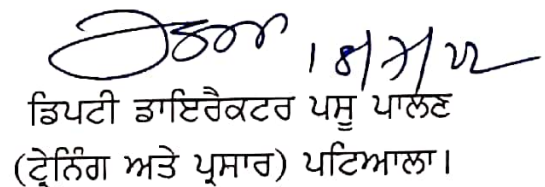 18/7/22
ਡਿਪਟੀ ਡਾਇਰੈਕਟਰ ਪਸੂ ਪਾਲਣ
(ਟ੍ਰੇਨਿੰਗ ਅਤੇ ਪ੍ਰਸਾਰ) ਪਟਿਆਲਾ।